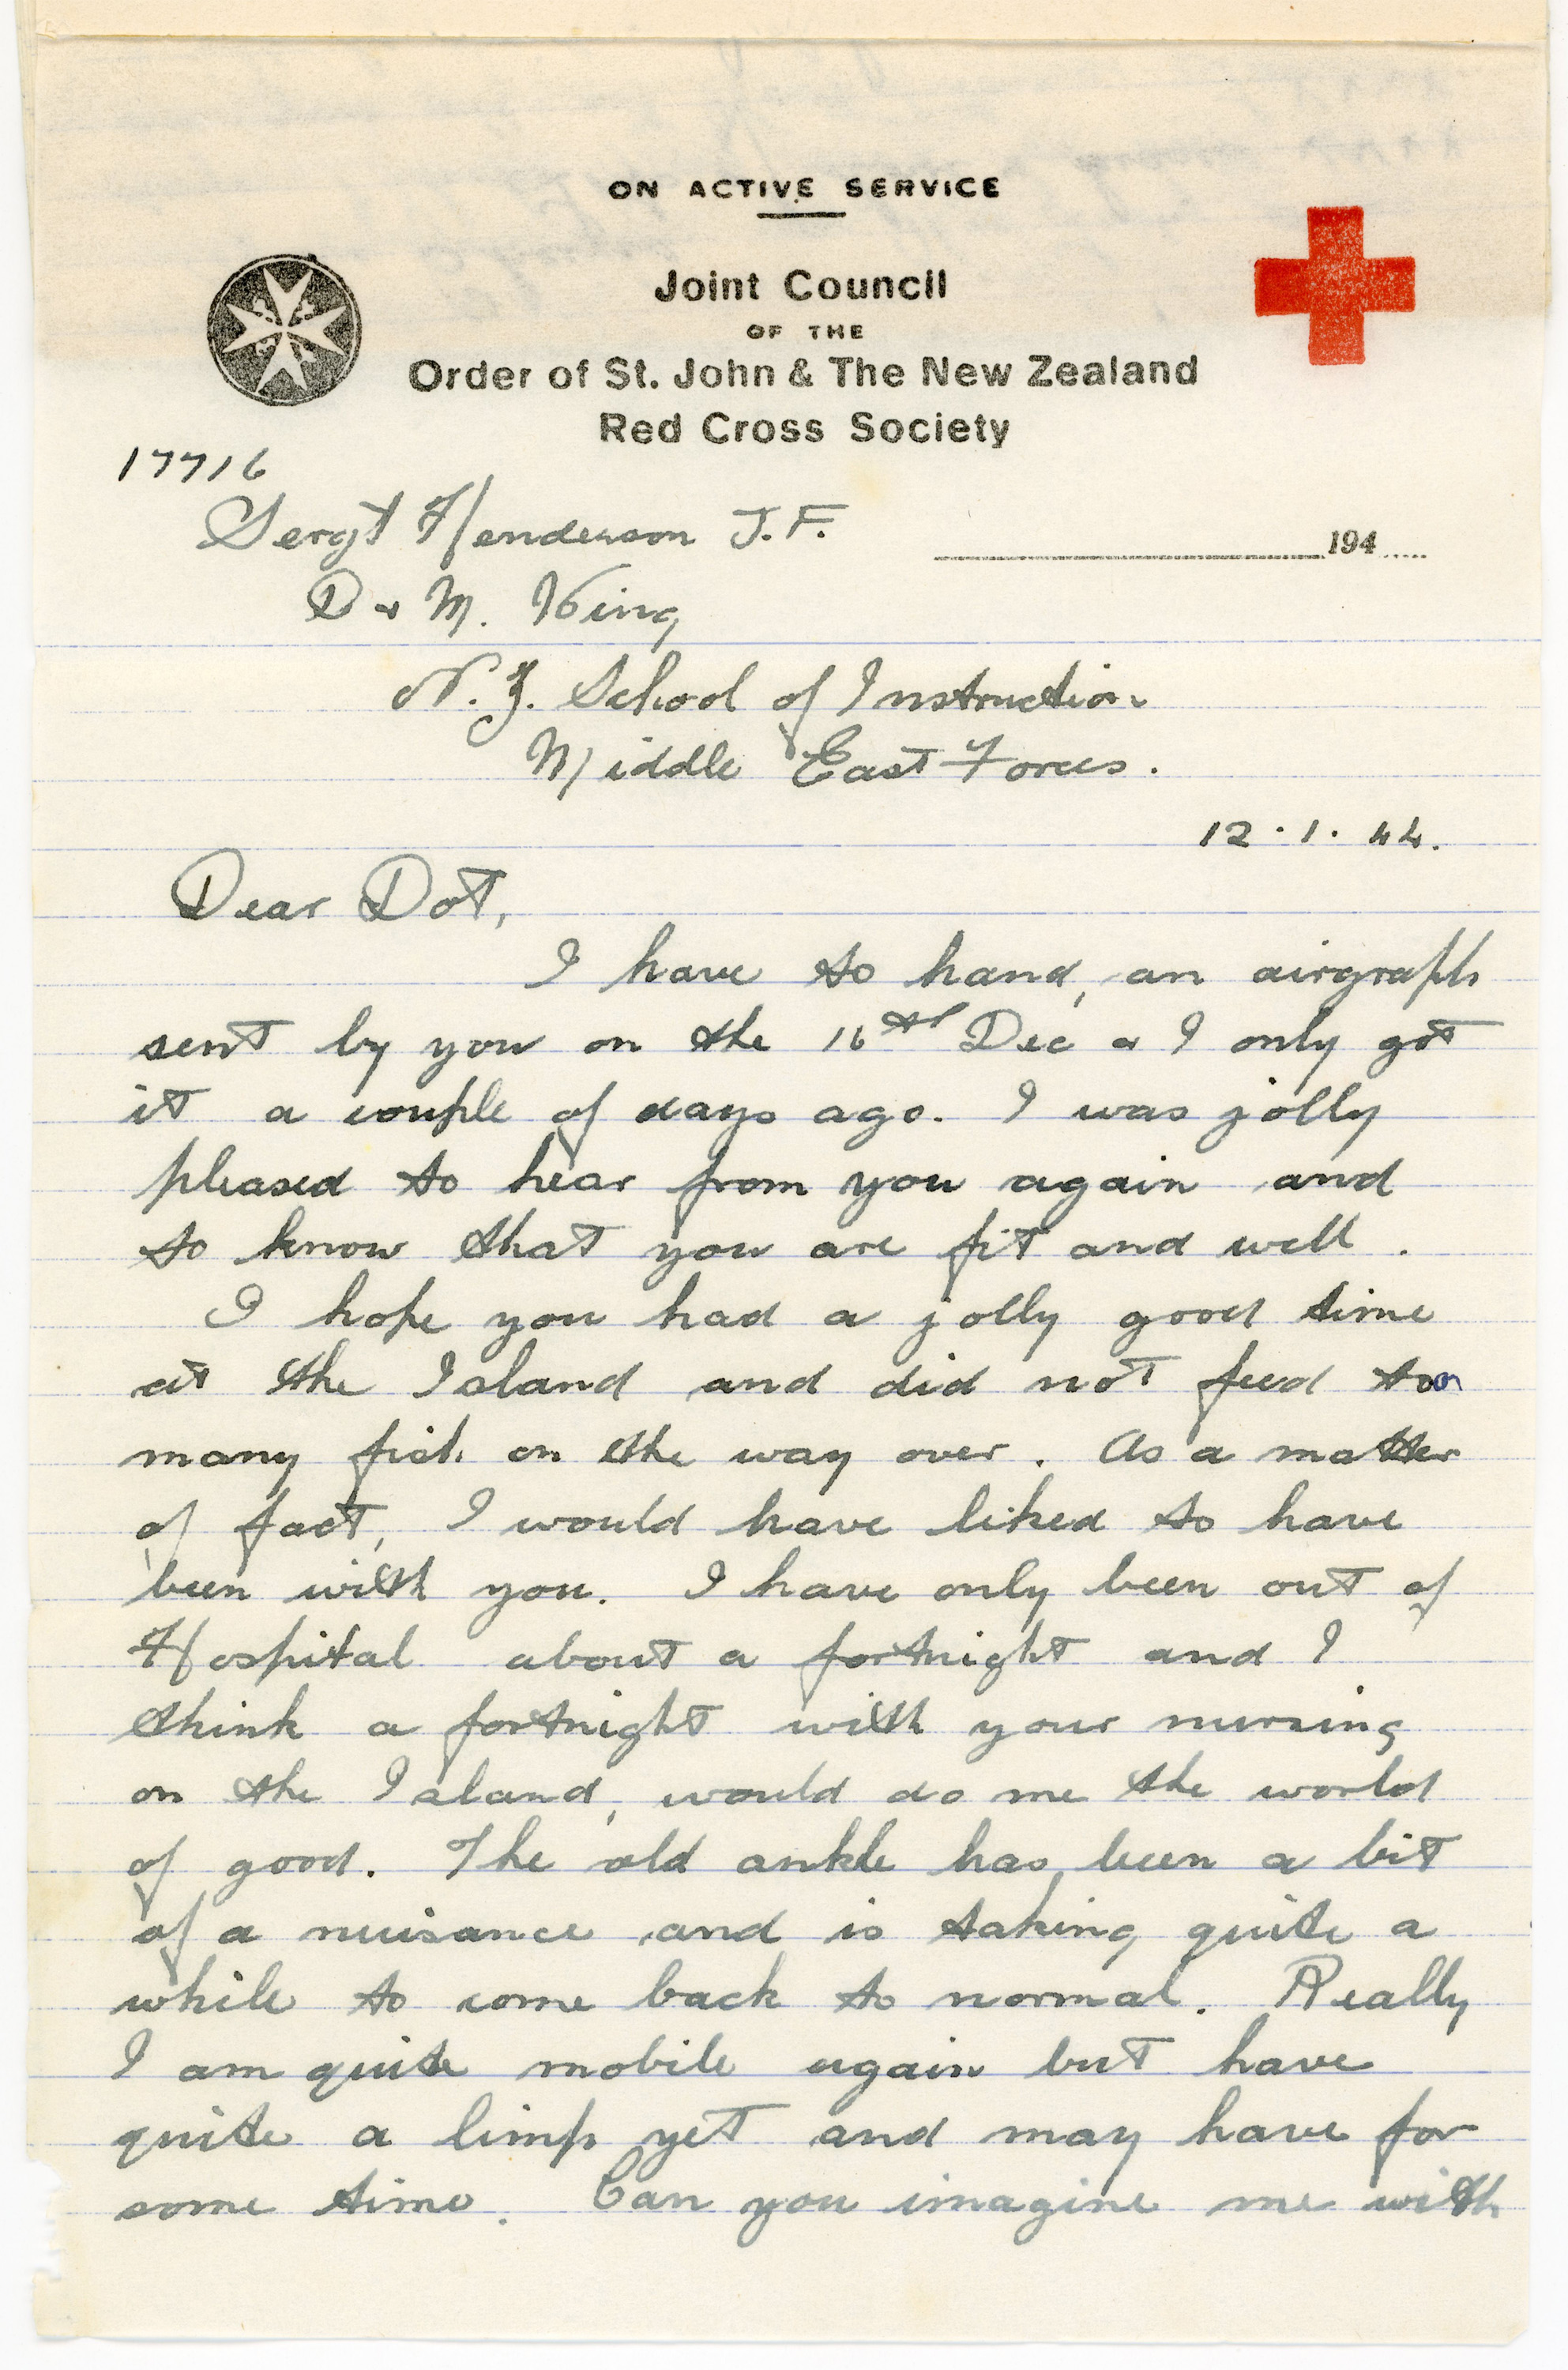 ON ACTIVE SERVICE
Joint Council
OF THE
Order of St. John & The New Zealand
Red Cross Society
17716
Sergt Henderson J.F.
194
D & M. Wing
N.Z. School of Instruction
Middle East Forces.
12.1.44.
Dear Dot,
I have to hand, an airgraph
sent by you on the 16th Dec & I only got
it a couple of days ago. I was jolly
pleased to hear from you again and
to know that you are fit and well.
I hope you had a jolly good time
at the Island and did not feed too
many fish on the way over. As a matter
of fact, I would have liked to have
been with you. I have only been out of
Hospital about a fortnight and I
think a fortnight with your nursing
on the Island, would do me the world
of good. The old ankle has been a bit
of a nuisance and is taking quite a
while to come back to normal. Really
I am quite mobile again but have
quite a limp yet and may have for
some time. Can you imagine me with